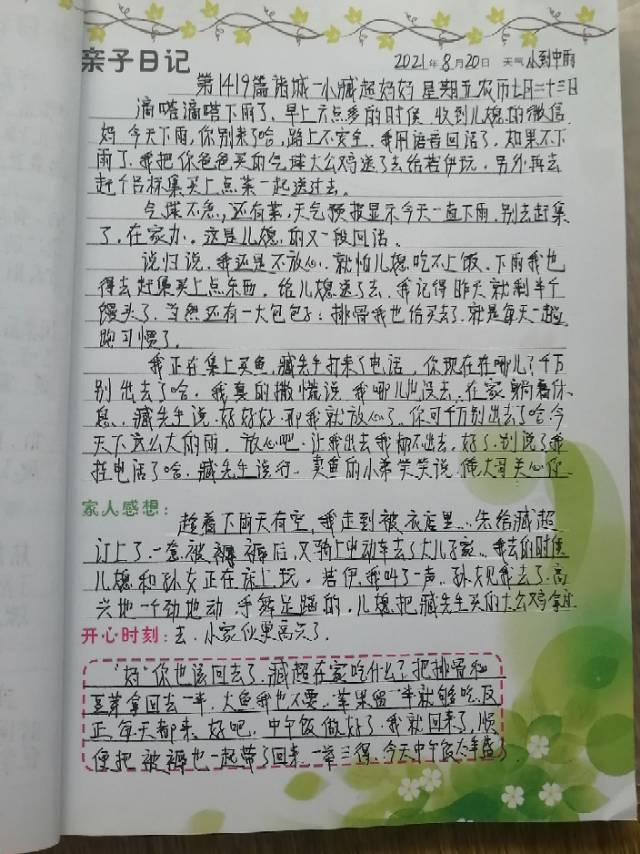 亲子日记 2021年8月20日 天气小到中雨
第1419篇 诸城一小臧超妈妈 星期五农历七月十三日
滴嗒滴嗒下雨了,早上六点多的时候,收到儿媳的微信
妈,今天下雨,你别来了哈,路上不安全,我用语音回话了,如果不下
雨了,我把你爸爸买的气球大公鸡送了去给若伊玩,另外再去
赶个吕标集买上点菜一起送过去。
气球不急,还有菜,天气预报显示今天一直下雨,别去赶集
了,在家办。这是儿媳的又一段回话。
说归说,我还是不放心,就怕儿媳吃不上饭,下雨我也
得去赶集买上点东西,给儿媳送了去,我记得昨天就剩半个
馒头了,当然还有一大包包子,排骨我也给买去了,就是每天一趟
跑习惯了。
我正在集上买鱼,臧先生打来了电话,你现在在哪儿?千万
别出去了哈,我真的撒慌说,我哪儿也没去,在家躺着休
息,臧先生说,好好好,那我就放心了,你可千万别出去了哈,今
天下这么大的雨,放心吧,让我出去我都不出去,好了,别说了我
挂电话了哈,臧先生说行,卖鱼的小弟笑笑说,俺大哥关心你
家人感想: 趁着下雨天有空,我走到被衣店里,先给臧超
订上了一套被褥,褥后,又骑上电动车去了大儿子家,我去的时候
儿媳和孙女正在床上玩,若伊,我叫了一声,孙女见我去了,高
兴地一个劲地动,手舞足蹈的,儿媳把臧先生买的大公鸡拿过
开心时刻: 去,小家伙更高兴了。
"妈"你也该回去了,臧超在家吃什么?把排骨和
豆芽拿回去一半,大鱼我也不要,苹果留一半就够吃,反
正每天都来,好吧,中午饭做好了,我就回来了,顺
便把被褥也一起带了回来,一举三得,今天中午饭太丰盛了